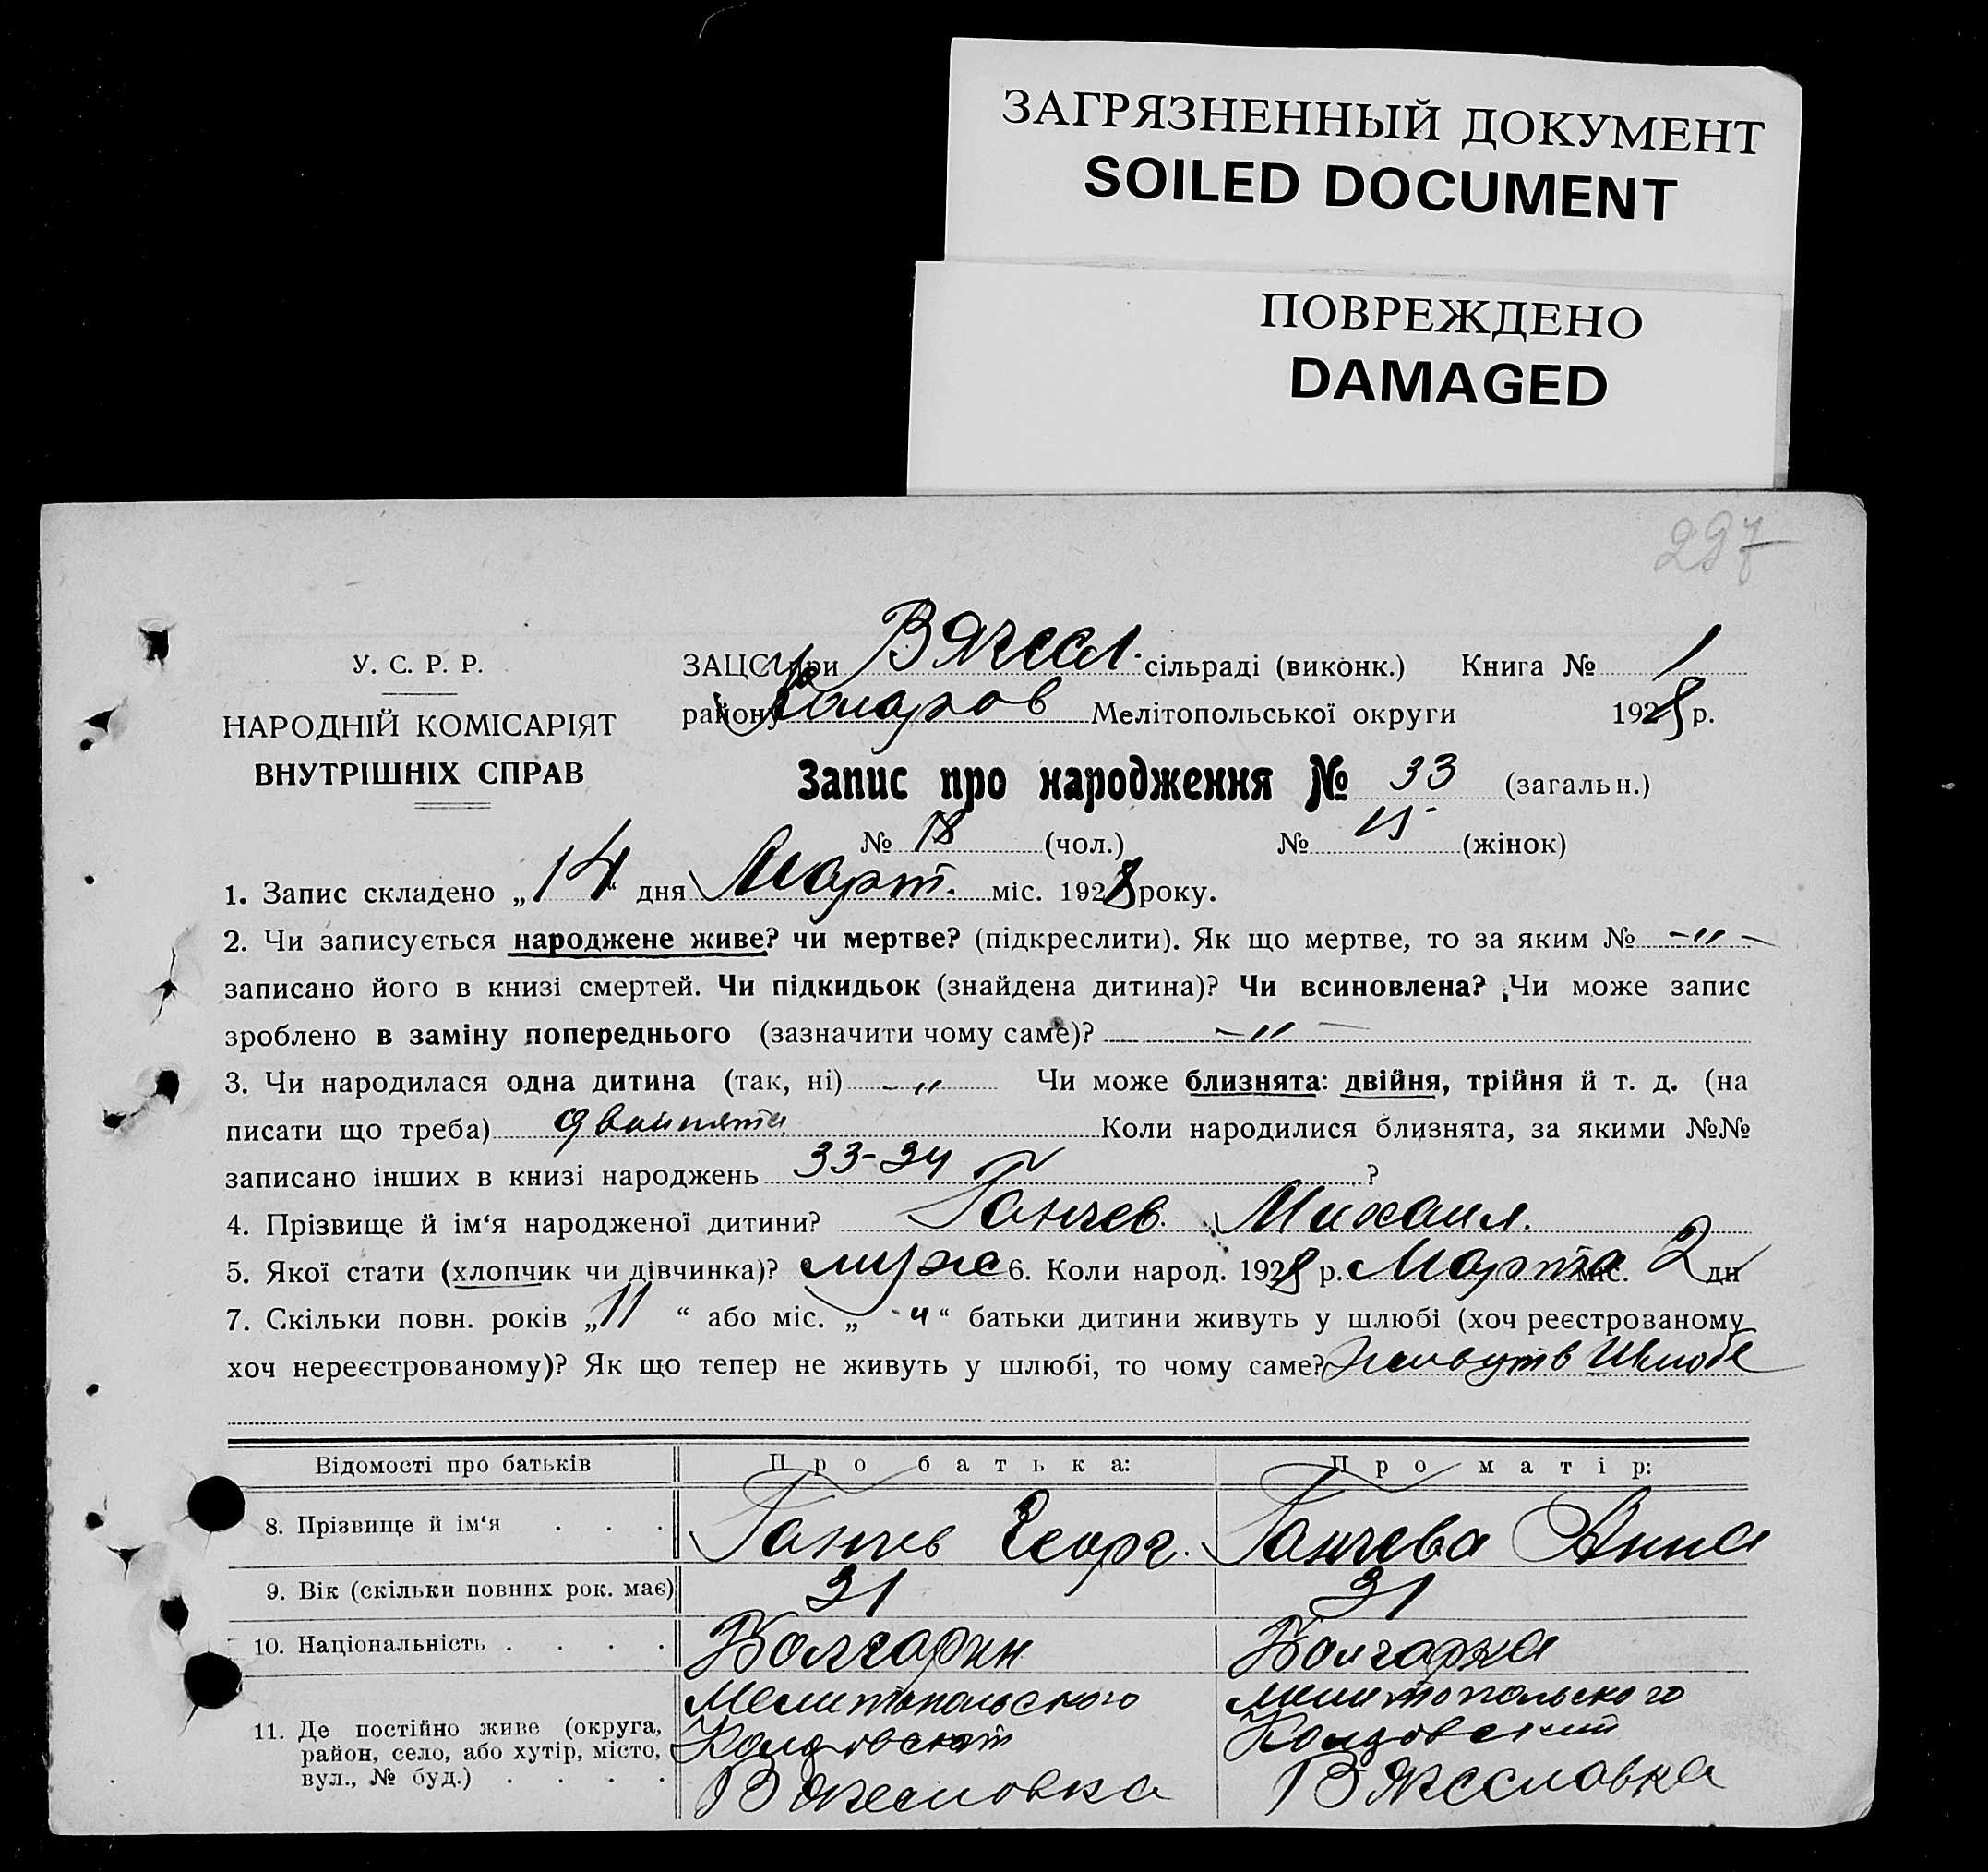 ЗАГРЯЗНЕННЫЙ ДОКУМЕНТ
SOILED DOCUMENT
ПОВРЕЖДЕНО
DAMAGED
297
У. С. Р. Р.
НАРОДНІЙ КОМІСАРІЯТ
ВНУТРІШНІХ СПРАВ
ЗАЦС при Вячесл. сільраді (виконк.) Книга № 1
району Коларов Мелітопольської округи 1928 р.
Запис про народження № 33 (загальн.)
№ 18 (чол.) № 15 (жінок)
1. Запис складено „14“ дня Март. міс. 1928 року.
2. Чи записується народжене живе? чи мертве? (підкреслити). Як що мертве, то за яким № -„-
записано його в книзі смертей. Чи підкидьок (знайдена дитина)? Чи всиновлена? Чи може запис
зроблено в заміну попереднього (зазначити чому саме)? -„-
3. Чи народилася одна дитина (так, ні) -„ Чи може близнята: двійня, трійня й т. д. (на
писати що треба) двойнята Коли народилися близнята, за якими №№
записано інших в книзі народжень 33-34 ?
4. Прізвище й ім‘я народженої дитини? Ганчев Михаил.
5. Якої стати (хлопчик чи дівчинка)? муж 6. Коли народ. 1928 р. Марта міс. 2 дн
7. Скільки повн. років „11“ або міс. „ “ батьки дитини живуть у шлюбі (хоч реєстрованому
хоч нереєстрованому)? Як що тепер не живуть у шлюбі, то чому саме? живуть в
Відомості про батьків Про батька: Про матір:
8. Прізвище й ім‘я . . . Ганчев Георг. Ганчева Анна
9. Вік (скільки повних рок. має) 31 31
10. Національність . . . . Болгарин Болгарка
11. Де постійно живе (округа, Мелитопольского Мелитопольского
район, село, або хутір, місто,
вул., № буд.) . . . . Вячеславка Вячеславка